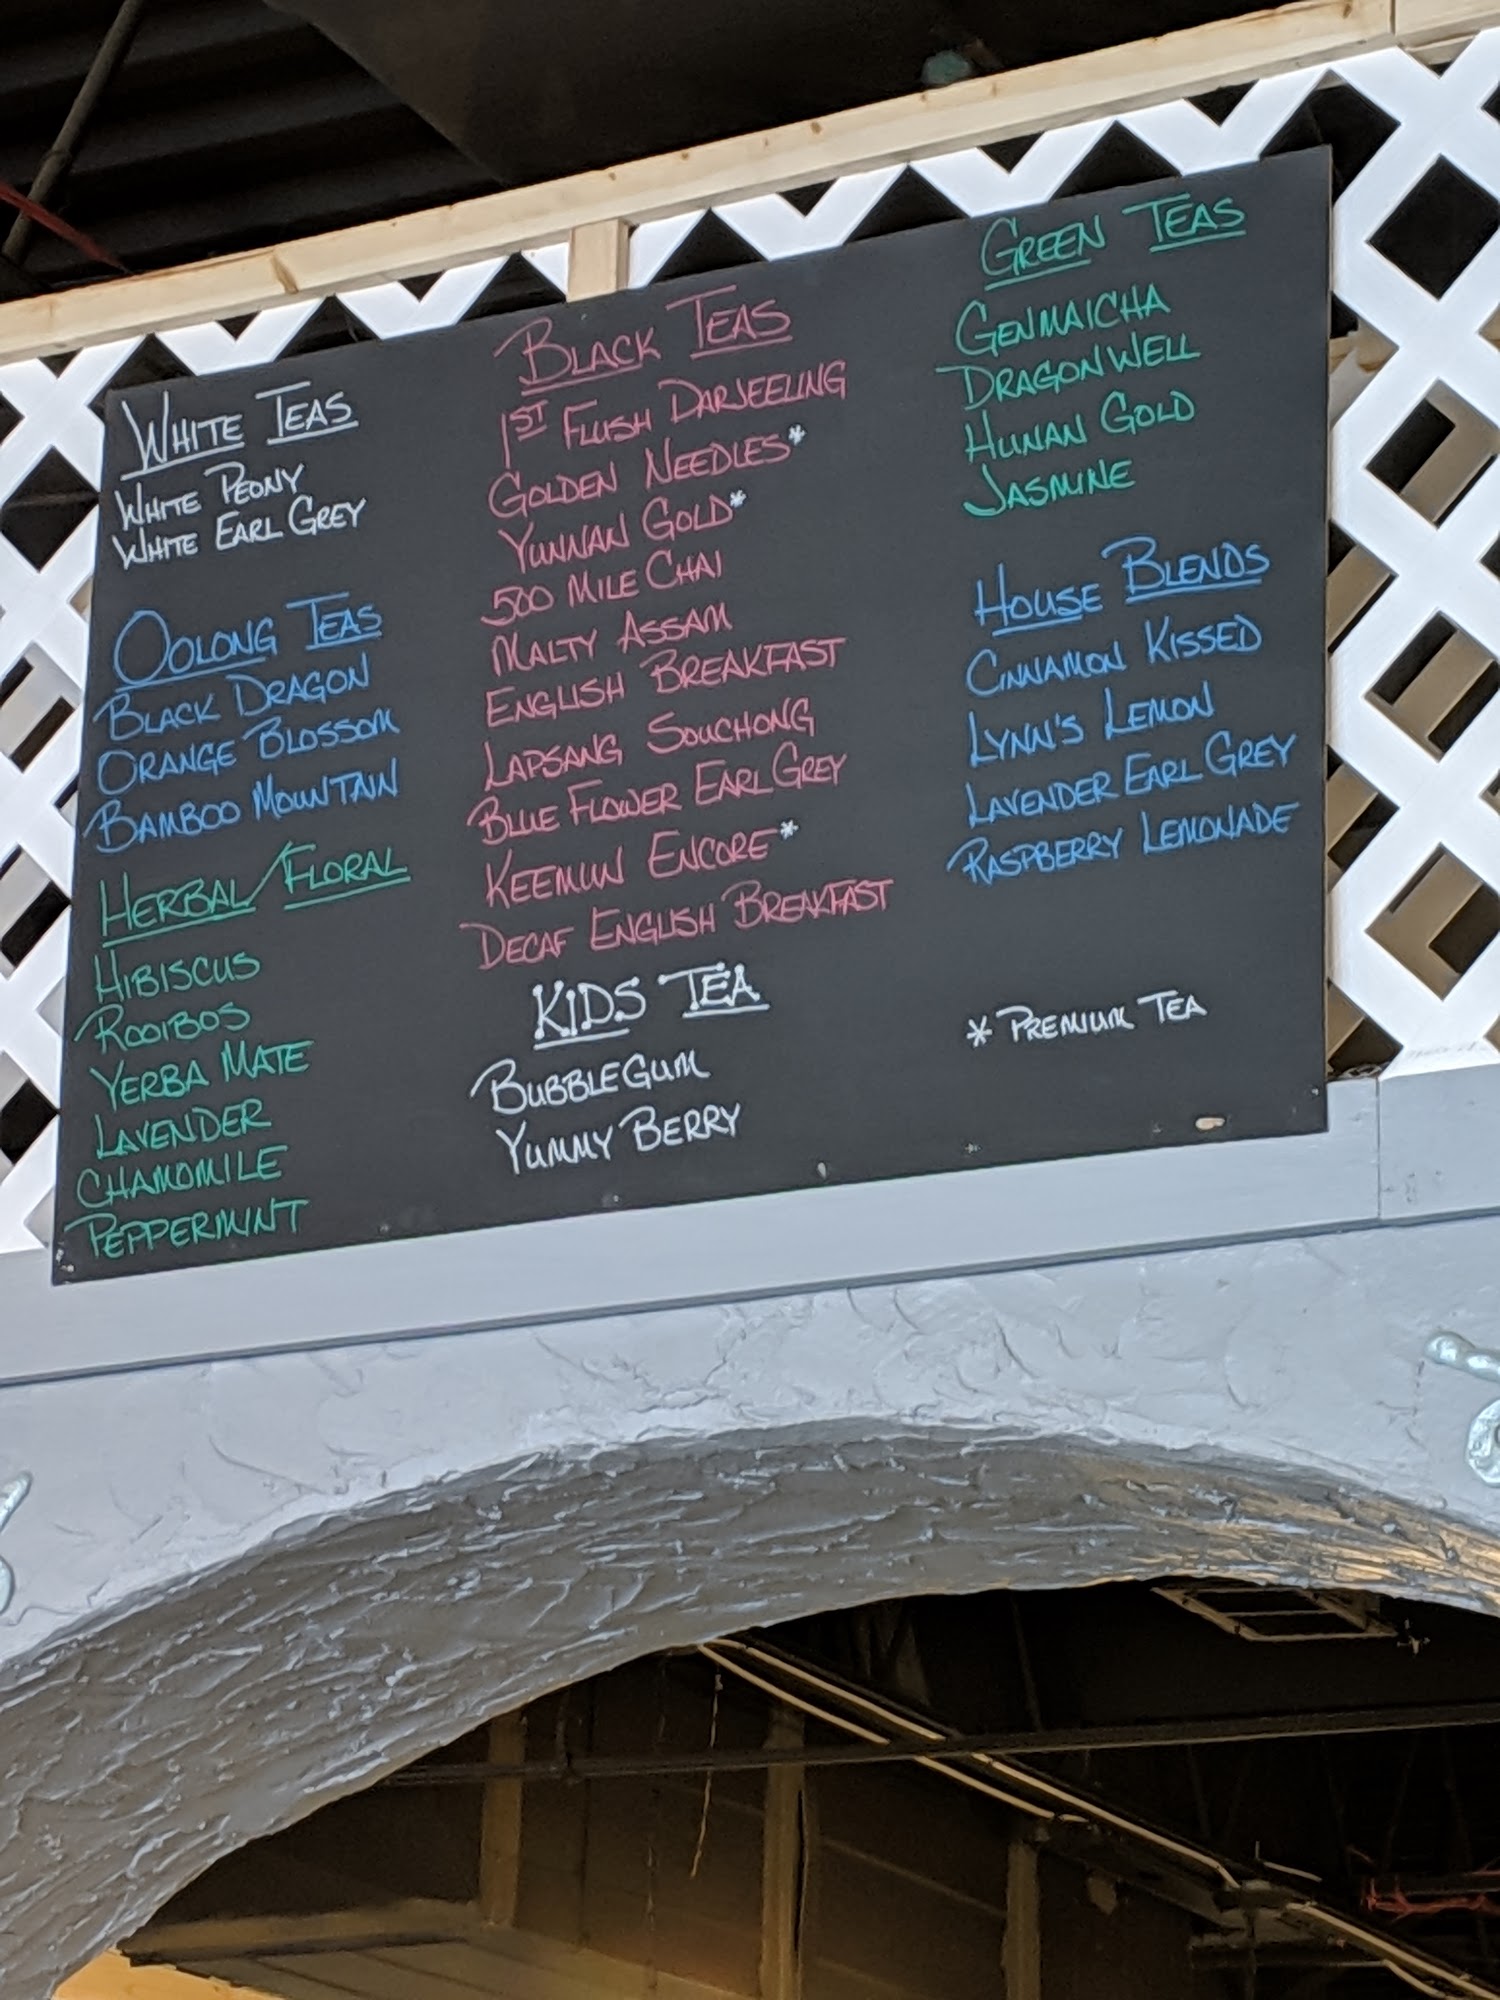 White Teas
White Peony
White Earl Grey
Oolong Teas
Black Dragon
Orange Blossom
Bamboo Mountain
Herbal/Floral
Hibiscus
Rooibos
Yerba Mate
Lavender
Chamomile
Peppermint
Black Teas
1st Flush Darjeeling
Golden Needles*
Yunnan Gold*
500 Mile Chai
Malty Assam
English Breakfast
Lapsang Souchong
Blue Flower Earl Grey
Keemun Encore*
Decaf English Breakfast
Kids Tea
BubbleGum
Yummy Berry
Green Teas
Genmaicha
Dragonwell
Hunan Gold
Jasmine
House Blends
Cinnamon Kissed
Lynn's Lemon
Lavender Earl Grey
Raspberry Lemonade
* Premium Tea